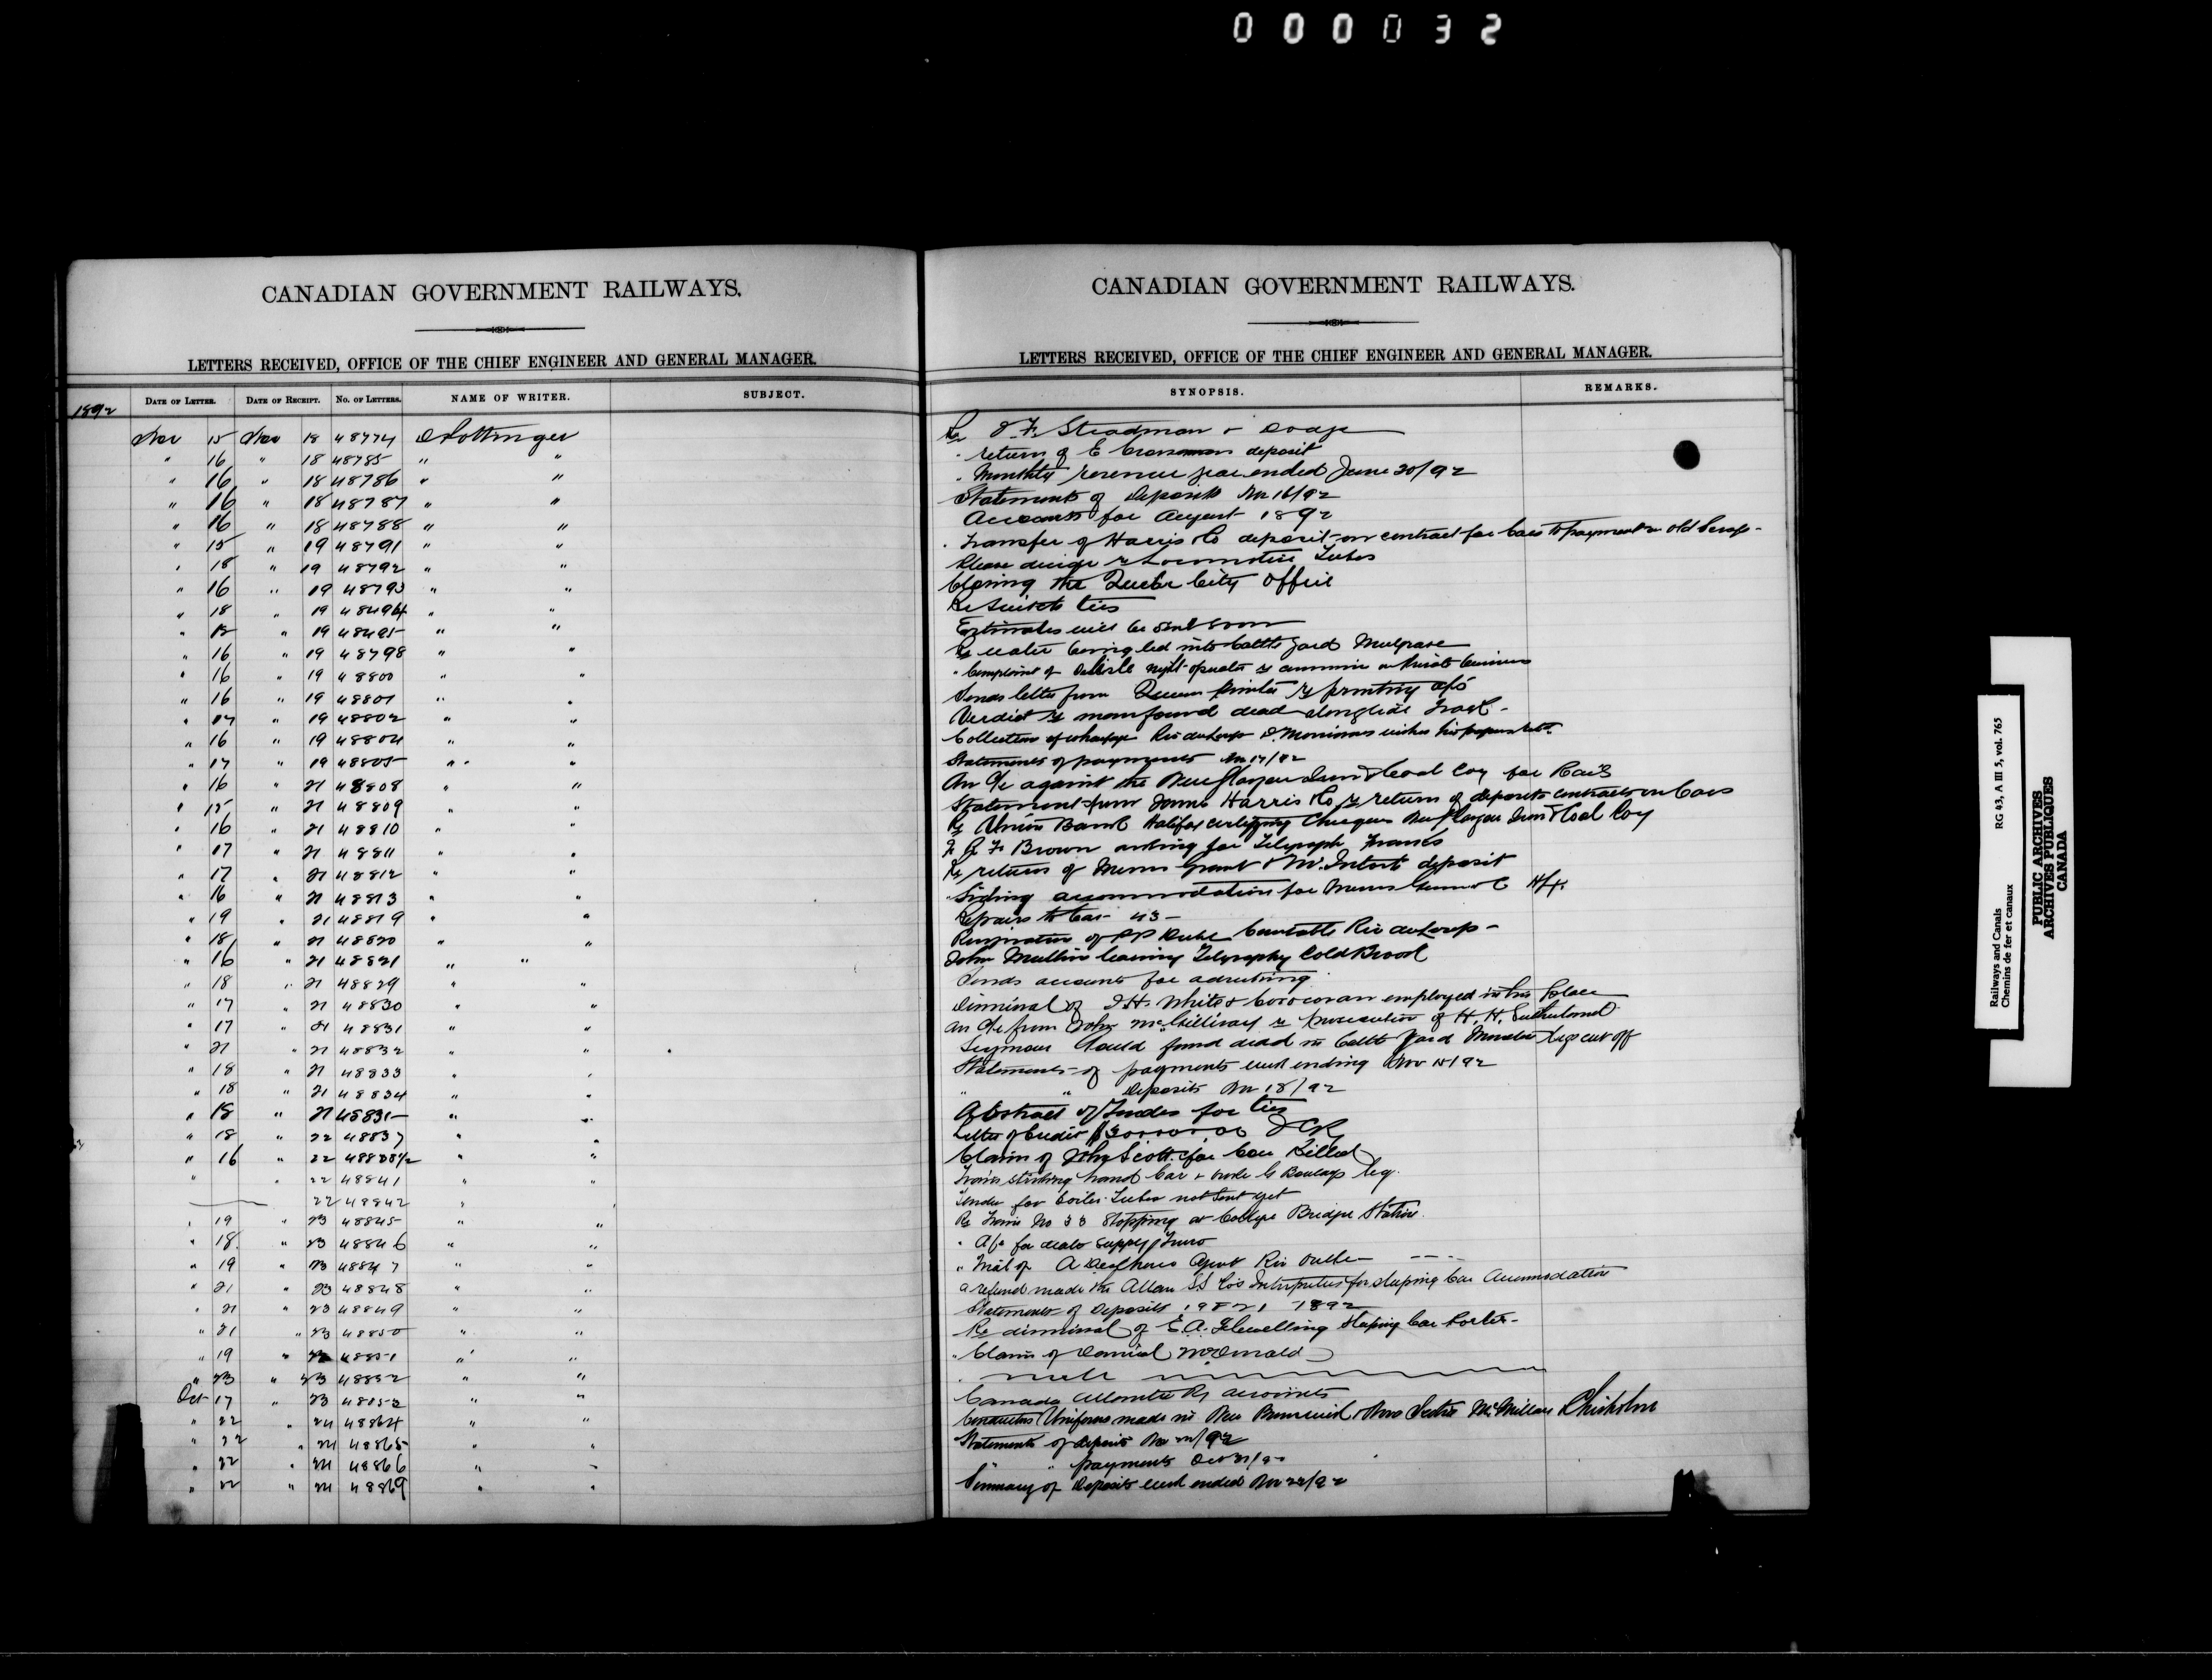 000032
CANADIAN GOVERNMENT RAILWAYS.
LETTERS RECEIVED, OFFICE OF THE CHIEF ENGINEER AND GENERAL MANAGER.
1892
DATE OF LETTER. DATE OF RECEIPT. NO. OF LETTERS. NAME OF WRITER. SUBJECT.
Nov 15 Nov 18 48774 D Pottinger
" 16 " 18 48785 " "
" 16 " 18 48786 " "
" 16 " 18 48787 " "
" 16 " 18 48788 " "
" 15 " 19 48791 " "
" 18 " 19 48792 " "
" 16 " 19 48793 " "
" 18 " 19 "
" 19 "
" 16 " 19 48798 " "
" 16 " 19 48800 " "
" 16 " 19 48801 " "
" 17 " 19 48802 " "
" 16 " 19 48804 " "
" 17 " 19 48805 " "
" 16 " 21 48808 " "
" 15 " 21 48809 " "
" 16 " 21 48810 " "
" 17 " 21 48811 " "
" 17 " 21 48812 " "
" 16 " 21 48813 " "
" 19 " 21 48819 " "
" 18 " 21 48820 " "
" 16 " 21 48821 " "
" 18 " 21 48829 " "
" 17 " 21 48830 " "
" 17 " 21 48831 " "
" 21 " 21 48832 " "
" 18 " 21 48833 " "
" 18 " 21 48834 " "
" 18 " 21 48835 " "
" 18 " 22 48837 " "
" 16 " 22 48838½ " "
" " 22 48841 " "
22 48842 "
" 19 " 23 48845 " "
" 18 " 23 48846 " "
" 19 " 23 48847 " "
" 21 " 23 48848 " "
" 21 " 23 48849 " "
" 21 " 23 48850 " "
" 19 " 48851 " "
" 23 " 23 48852 " "
Oct 17 " 23 " "
" 22 " 24 48864 " "
" 22 " 24 48865 " "
" 22 " 24 48866 " "
" 22 " 24 48869 " "
CANADIAN GOVERNMENT RAILWAYS.
LETTERS RECEIVED, OFFICE OF THE CHIEF ENGINEER AND GENERAL MANAGER.
SYNOPSIS. REMARKS.
Re Steadman + Dodge
" return of E Crossman deposit
" Monthly revenue year ended June 30/92
Statements of Deposits Nov 16/92
Accounts for August 1892
Transfer of Harris Co deposit on contract for Cars to payment on old Scrap
Please decide re Locomotive Tubes
Closing the Quebec City Office
Re Switch ties
Estimates will be sent soon
Re water being led into Cattle yard Mulgrave
" Complaint of Delisle night operator re
Sends letter from Queens Printer re printing a/cs
Verdict re man found dead alongside Track
Collection of wharfage Riv du Loup wishes his papers
Statements of payments Nov 17/92
An a/c against the New Glasgow Iron & Coal Coy for Rails
Statement from James Harris Co re return of deposits contracts on Cars
Re Union Bank Halifax certifying Cheques New Glasgow Iron & Coal Coy
Brown asking for Telegraph Franks
Re return of Messrs Grant & McIntosh deposit
Siding accommodation for Messrs Hfx.
Repairs to Car 43
Resignation of Constable Riv du Loup
John Mullin learning Telegraphy Cold Brook
Sends accounts for advertising
Dismissal of White & Corcoran employed in his place
an a/c from John McGillivray re prosecution of H. H. Sutherland
Seymour found dead in Cattle Yard Moncton legs cut off
Statements of payments week ending Nov 15/92
" " Deposits Nov 18/92
Abstract of Tenders for ties
Letter of Credit ICR
Claim of John Scott for Cow Killed
Train striking hand Car + broke leg.
Tender for boiler tubes not sent yet
Re Train No 33 Stopping at College Bridge Station
" A/c for water supply Truro
" Trial of Agent Riv Ouelle
a refund made the Allan SS Co's Interpreter for sleeping Car Accommodation
Statements of Deposits 19 & 21 1892
Re dismissal of E.A. Flewelling Sleeping Car Porter
" Claim of Daniel McDonald
Canada Atlantic Ry accounts
Conductors Uniforms made in New Brunswick & Nova Scotia McMillan Chisholm
Statements of Deposits Nov 22/92
" " payments Oct 31/92
Summary of Deposits week ended Nov 22/92
Railways and Canals RG 43, A III 5, vol. 765
Chemins de fer et canaux
PUBLIC ARCHIVES
ARCHIVES PUBLIQUES
CANADA